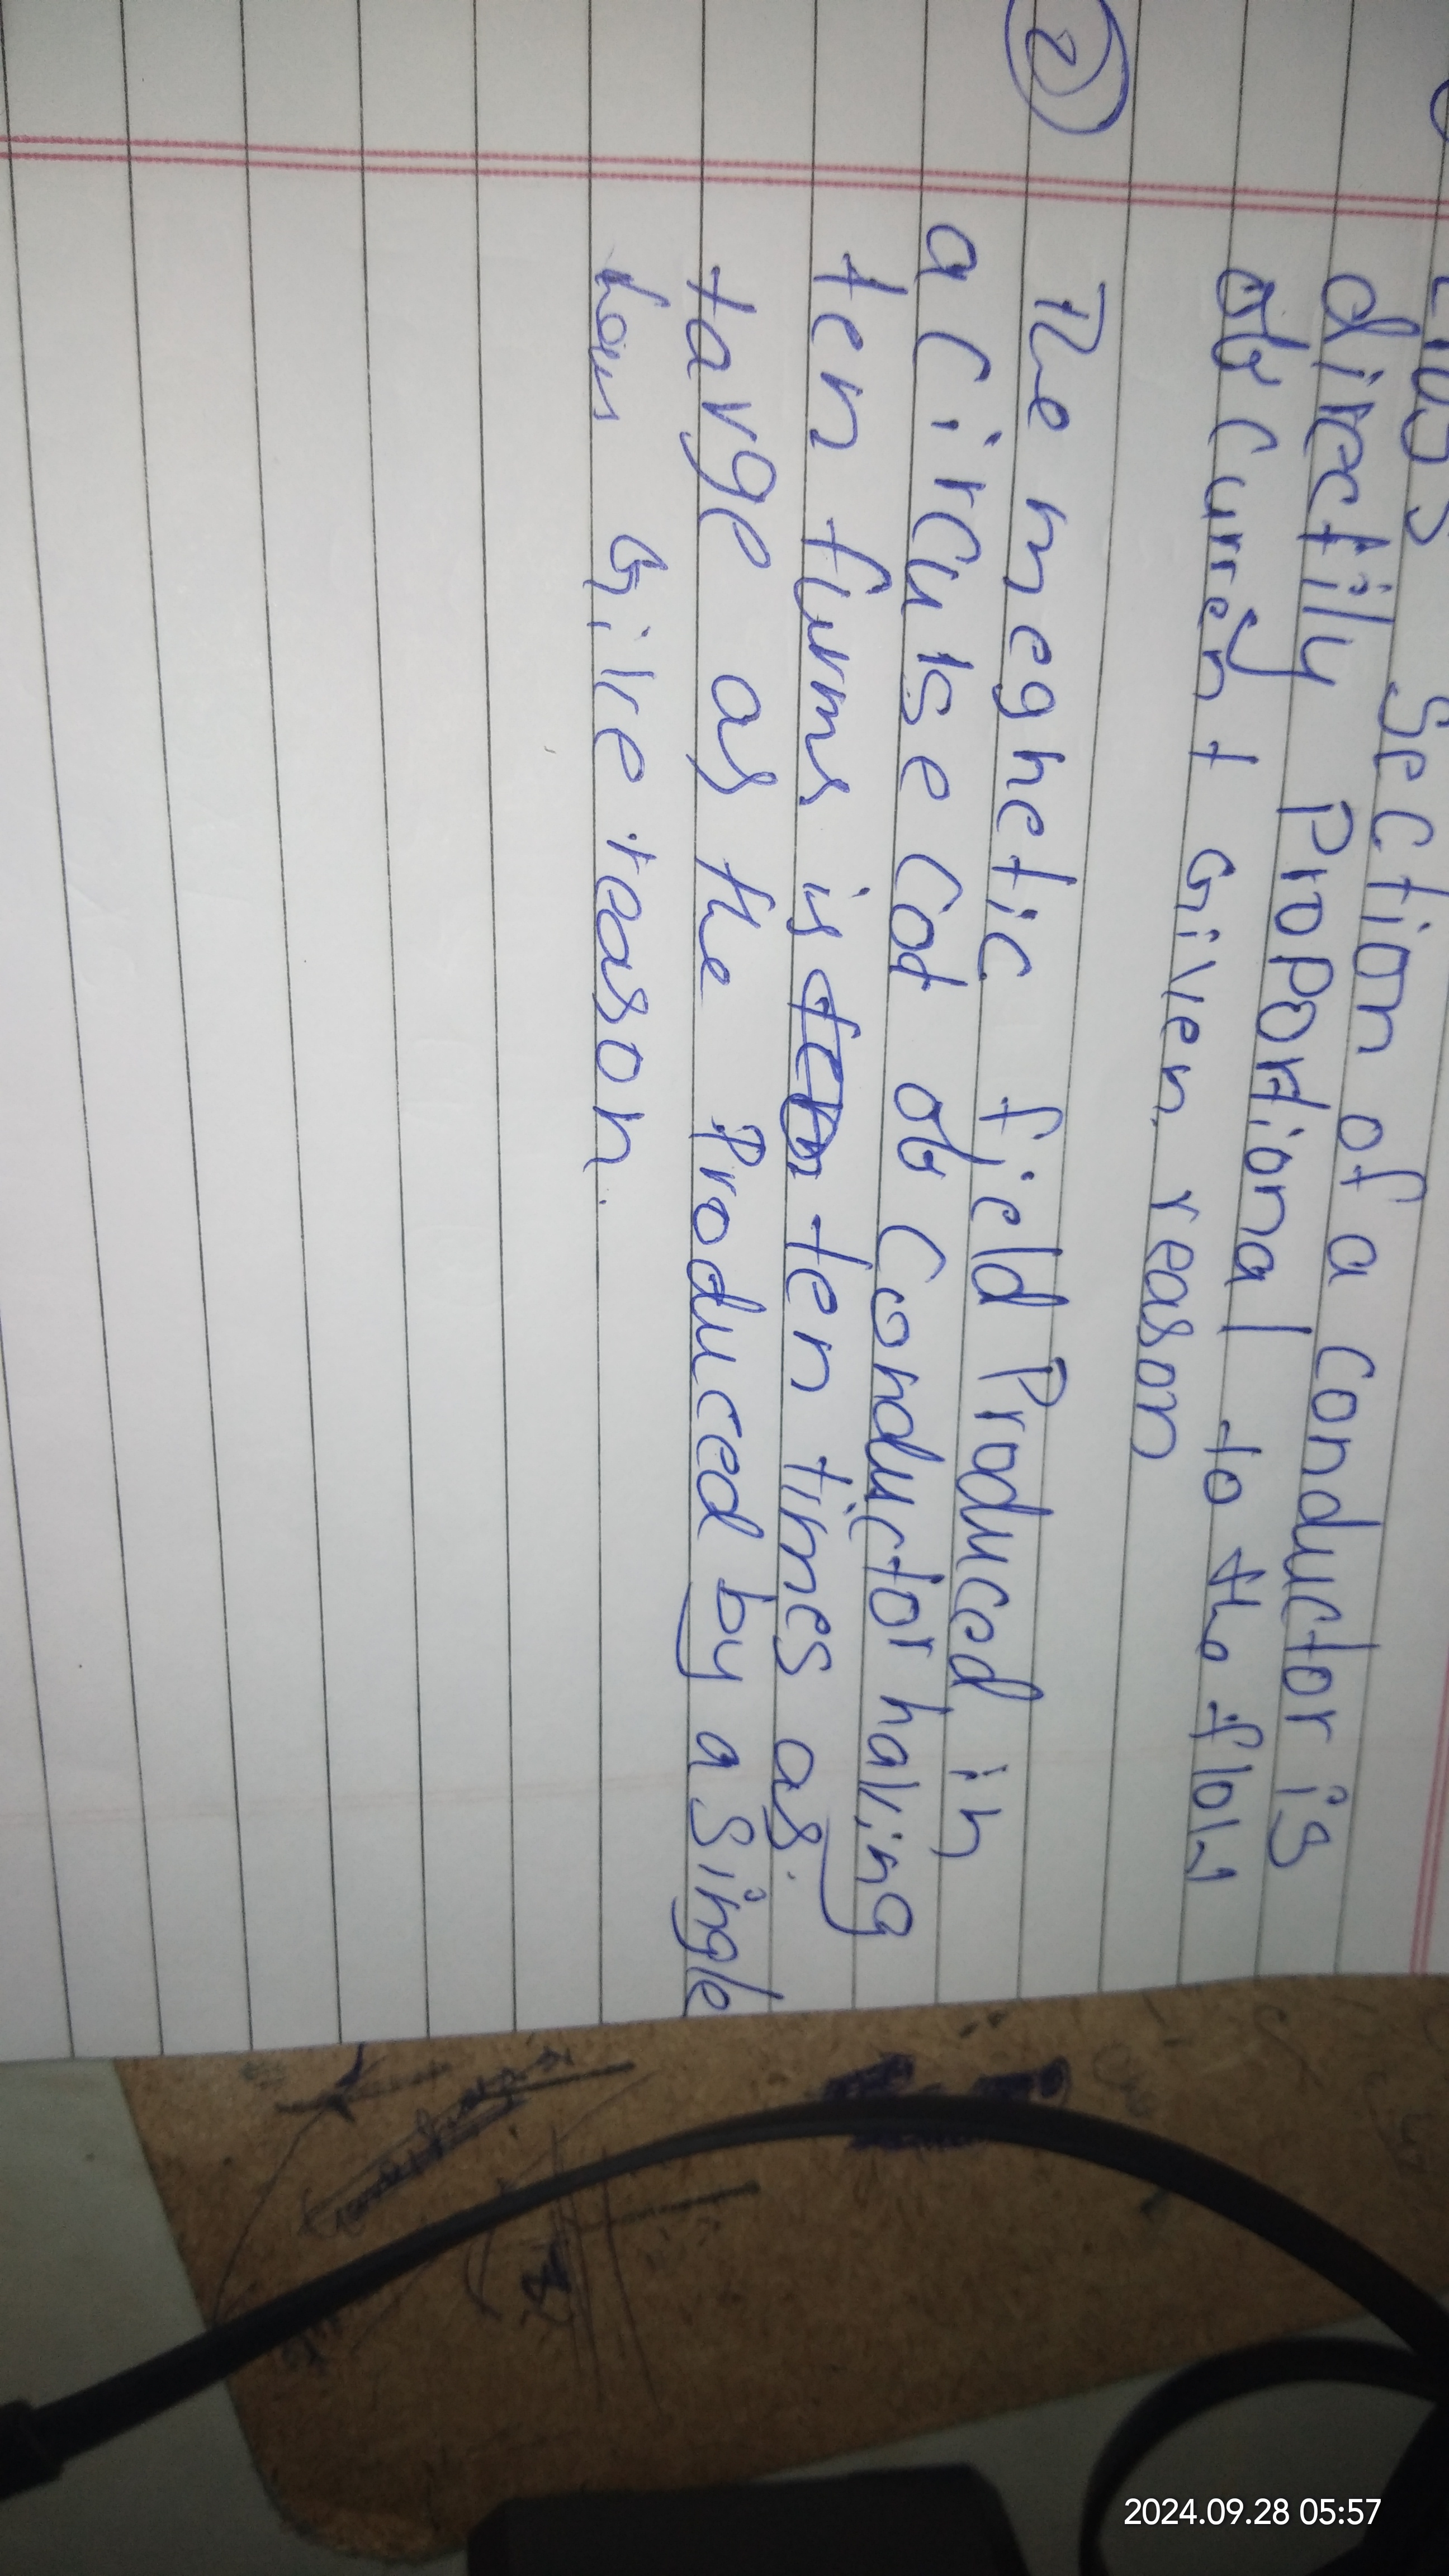 Section of a conductor is
directily Proportional to the flow
of Current Given reason
② The meghetic field Produced in
a Circulse Cod of Conductor having
ten furns is ten times as
targe as the Produced by a Single
Give reason.
2024.09.28 05:57